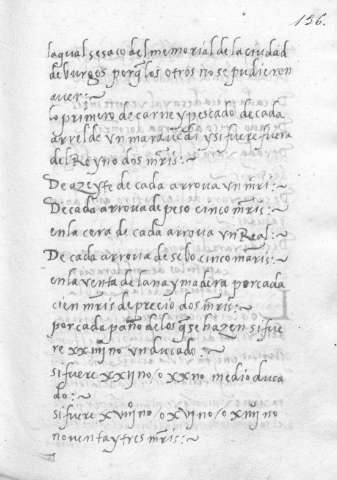 156.
laqual sesaco del memorial de la ciudad
de burgos porq̃ los otros no se pudieron
aver :~
lo primero de carne y pescado de cada
arrel de un maravedi y si fuere fuera
del Reyno dos mr̃is :~
De azeyte de cada arrova un mr̃i :~
De cada arrova de peso cinco mr̃is :~
en la cera de cada arrova un Real :~
De cada arrova de sebo cinco mar̃is :~
en la venta de lana y madera por cada
cien mr̃is de precio dos mr̃is :~
por cada paño de los q̃ se hazen si fue
re xxiiijno un ducado :~
si fuere xxijno / o xxno medio duca
do :~
si fuere xviijno / o xvjno / o xiiijno
noventa y tres mr̃is :~